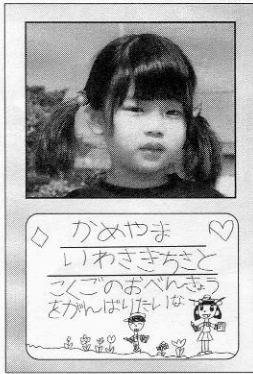 かめやま
いわさきちさと
こくごのおべんきょう
をがんばりたいな